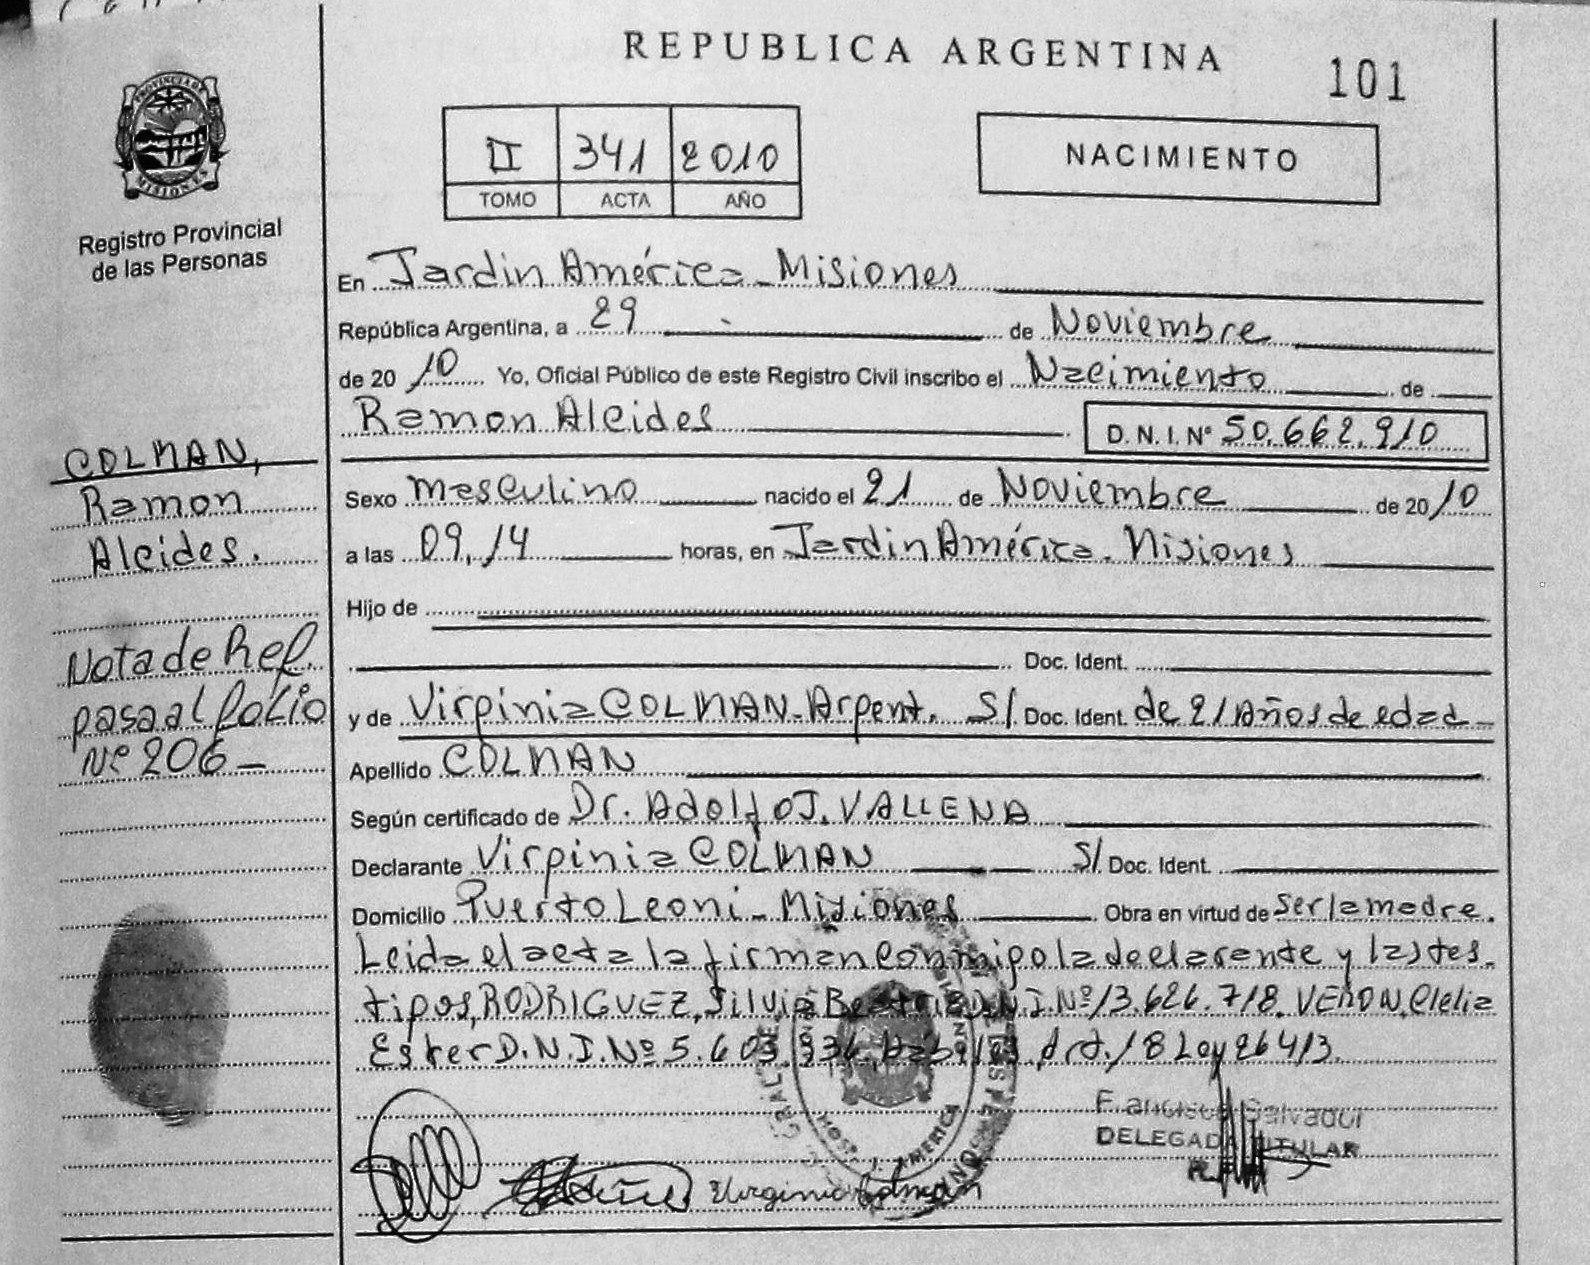 REPUBLICA ARGENTINA
101
PROVINCIA DE
MISIONES
Registro Provincial
de las Personas
II 341 2010
TOMO ACTA AÑO
NACIMIENTO
En Jardin América - Misiones
República Argentina, a 29 de Noviembre
de 2010 Yo, Oficial Público de este Registro Civil inscribo el Nacimiento de
Ramon Alcides D.N.I. Nº 50.662.910
Sexo masculino nacido el 21 de Noviembre de 2010
a las 09,14 horas, en Jardin América - Misiones
Hijo de
Doc. Ident.
y de Virginia COLMAN - Argent. S/ Doc. Ident. de 21 Años de edad -
Apellido COLMAN
Según certificado de Dr. Adolfo J. VALLENA
Declarante Virginia COLMAN S/ Doc. Ident.
Domicilio Puerto Leoni - Misiones Obra en virtud de ser la madre.
Leida el acta la firman conmigo la declarante y las tes-
tigos, RODRIGUEZ, Silvia Beatriz D.N.I. Nº 13.626.718. VERON, Clelia
Ester D.N.I. Nº 5.603.936, Habiles, Art. 18 Ley 26413.
COLMAN,
Ramon
Alcides.
Nota de Ref.
pasa al folio
Nº 206 -
HOSP. J. AMERICA
Virginia Colman
Francisco Salvador
DELEGADA TITULAR